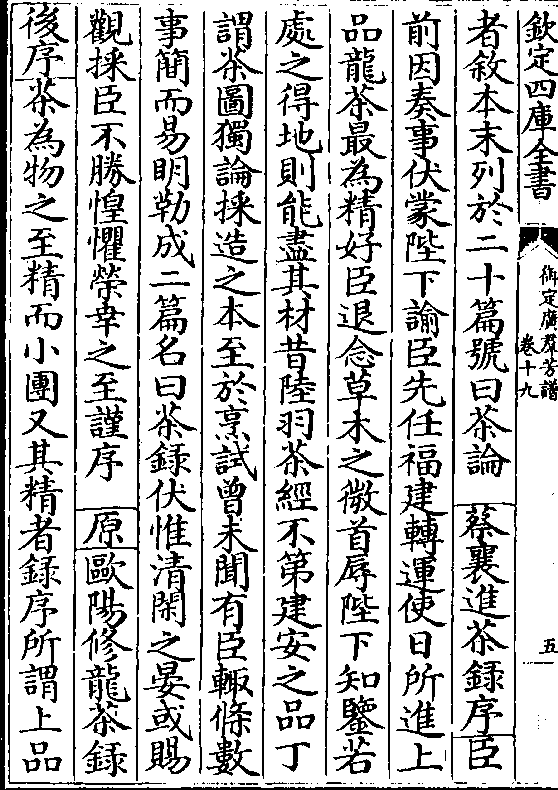 欽定四庫全書
御定廣羣芳譜
卷十九
五
者敘本末列於二十篇號曰茶論 蔡襄進茶錄序臣
前因奏事伏蒙陛下諭臣先任福建轉運使日所進上
品龍茶最為精好臣退念草木之微首辱陛下知鑒若
處之得地則能盡其材昔陸羽茶經不第建安之品丁
謂茶圖獨論採造之本至於烹試曾未聞有臣輒條數
事簡而易明勒成二篇名曰茶錄伏惟清閑之宴或賜
觀採臣不勝惶懼榮幸之至謹序 原歐陽修龍茶錄
後序茶為物之至精而小團又其精者錄序所謂上品